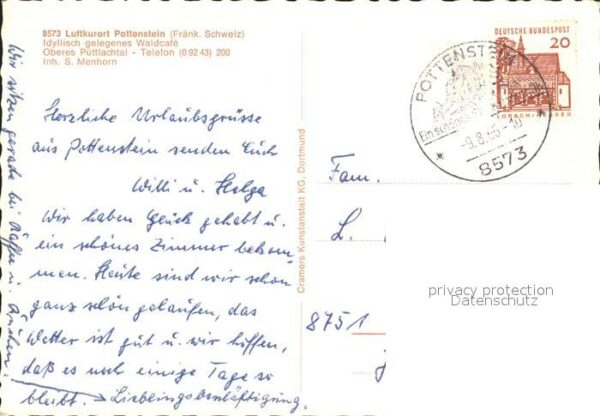 8573 Luftkurort Pottenstein (Fränk. Schweiz)
Idyllisch gelegenes Waldcafé
Oberes Püttlachtal - Telefon (0 92 43) 200
Inh. S. Menhorn
Herzliche Urlaubsgrüsse
aus Pottenstein senden Euch
Willi u. Helga
Wir haben Glück gehabt u.
ein schönes Zimmer bekom
men. Heute sind wir schon
ganz schön gelaufen, das
Wetter ist gut u. wir hoffen,
daß es noch einige Tage so
bleibt. → Lieblingsbeschäftigung.
Wir sitzen gerade bei Kaffee u. Kuchen
Cramers Kunstanstalt KG, Dortmund
DEUTSCHE BUNDESPOST
20
LORSCH/HESSEN
POTTENSTEIN
8573
Fam.
L.
8751
privacy protection
Datenschutz